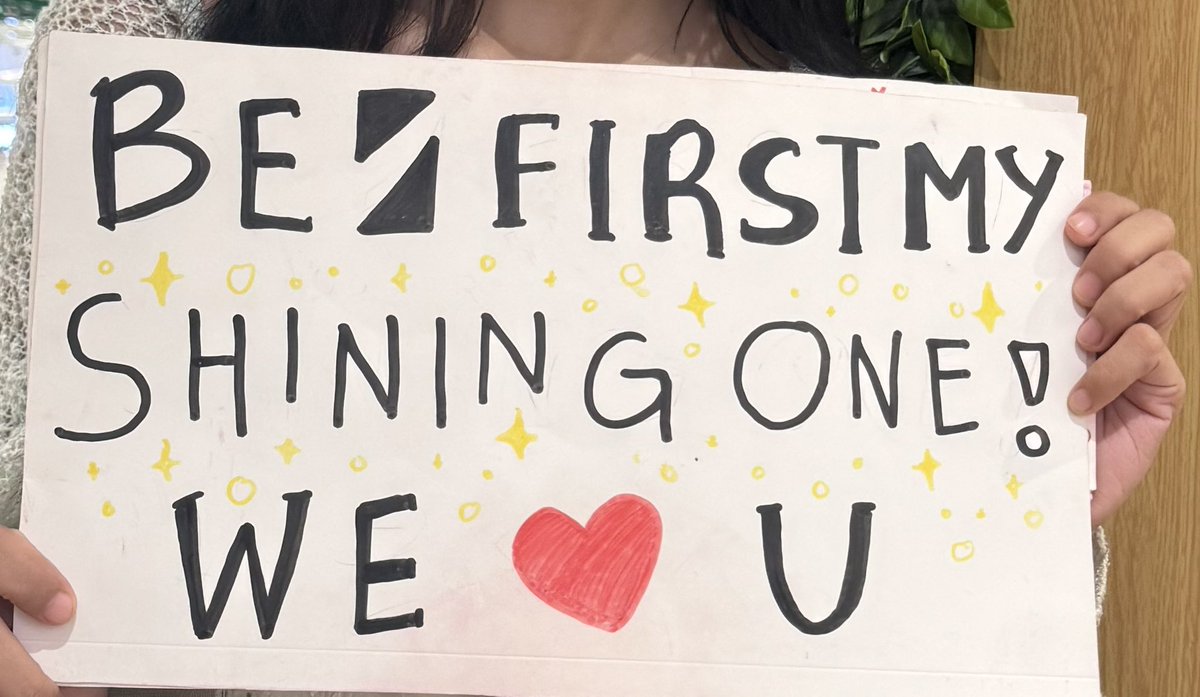 BE FIRST MY
SHINING ONE!
WE ❤ U